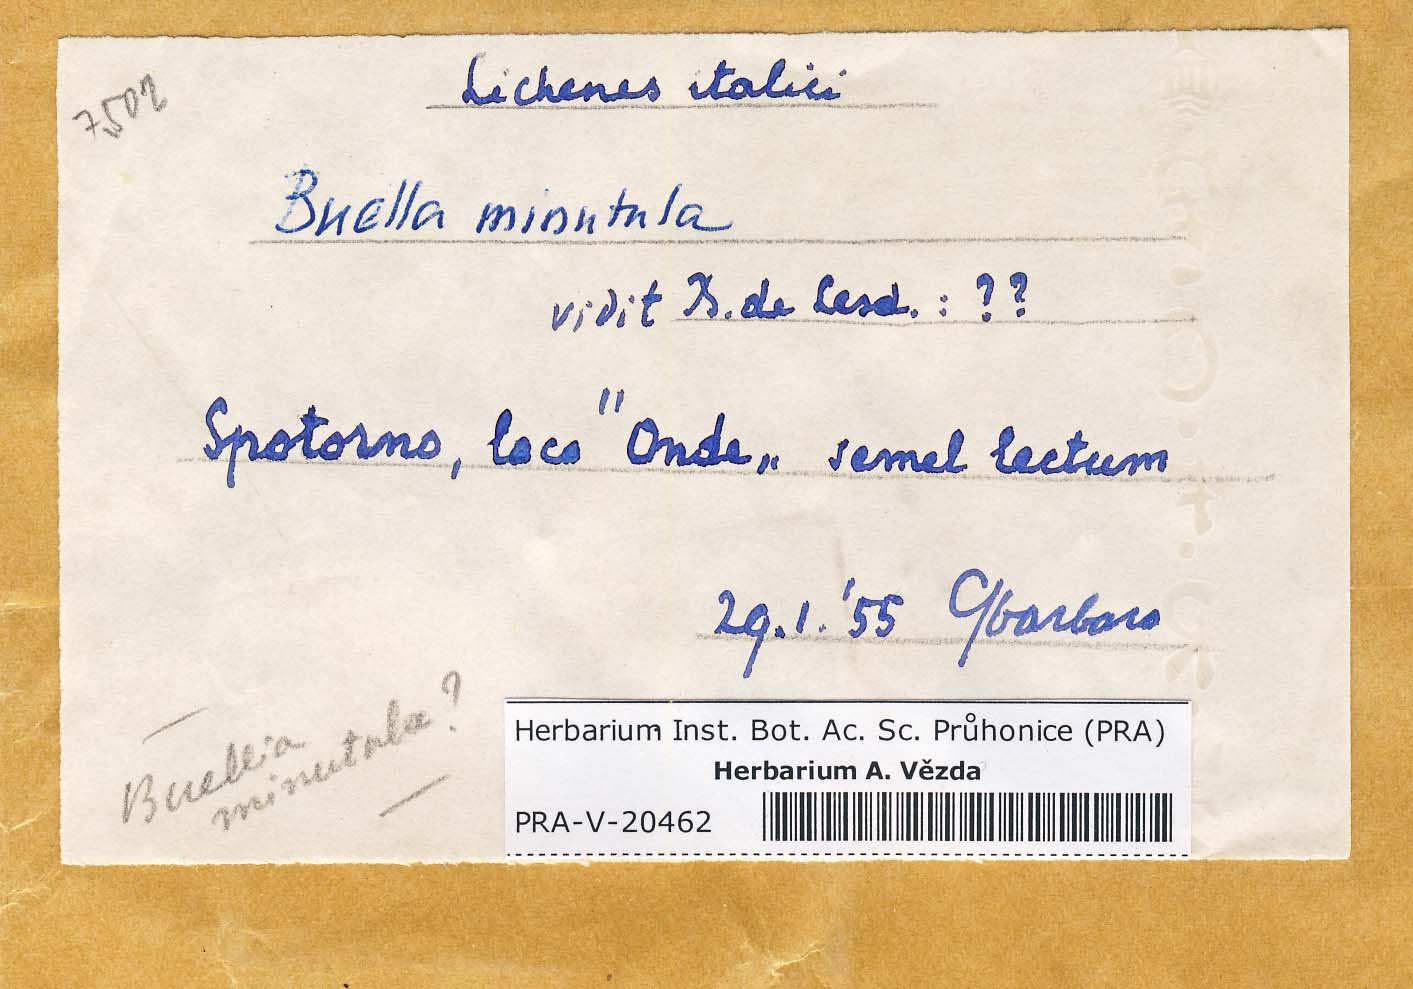 7502
Lichenes italici
Buella minutula
vidit B. de Lesd. : ??
Spotorno, loco "Onde„ semel lectum
29.1.'55 Gbarbaro
Buellia
minutula?
Herbarium Inst. Bot. Ac. Sc. Průhonice (PRA)
Herbarium A. Vězda
PRA-V-20462